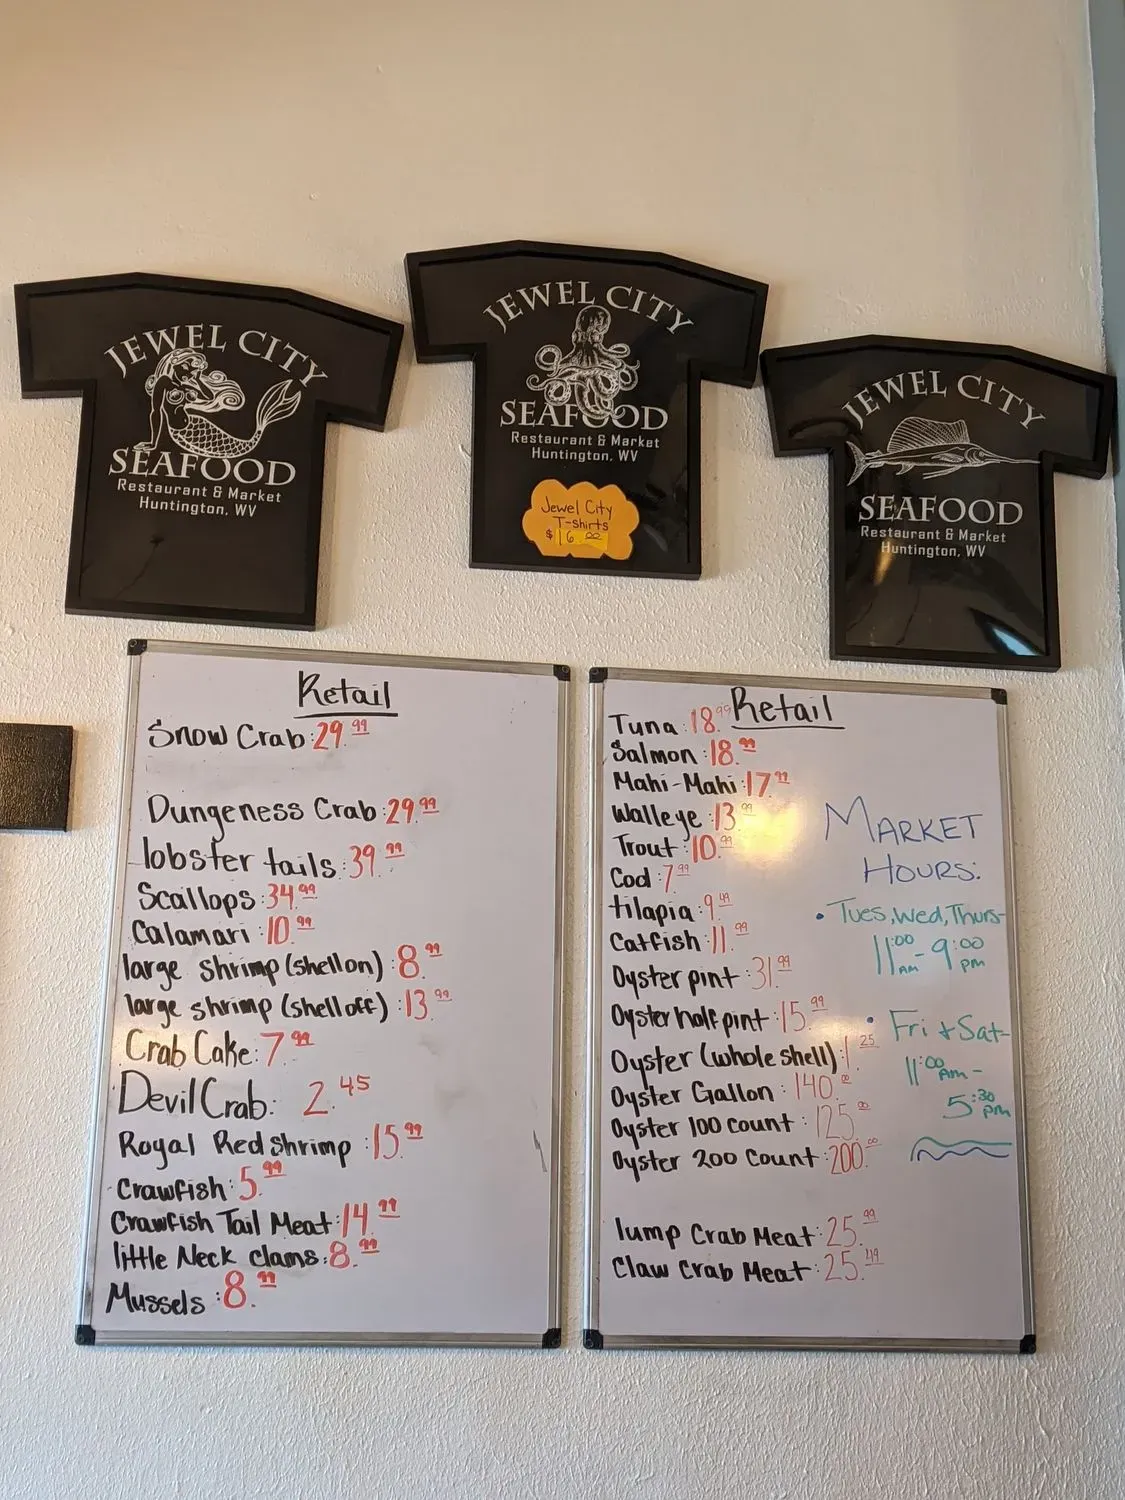 JEWEL CITY
SEAFOOD
Restaurant & Market
Huntington, WV
JEWEL CITY
SEAFOOD
Restaurant & Market
Huntington, WV
Jewel City
T-shirts
$16.00
JEWEL CITY
SEAFOOD
Restaurant & Market
Huntington, WV
Retail
Snow Crab: 29.99
Dungeness Crab: 29.99
lobster tails: 39.99
Scallops: 34.99
Calamari: 10.99
large shrimp (shell on): 8.99
large shrimp (shell off): 13.99
Crab Cake: 7.99
Devil Crab: 2.45
Royal Red Shrimp: 15.99
Crawfish: 5.99
Crawfish Tail Meat: 14.99
little Neck clams: 8.99
Mussels: 8.99
Retail
Tuna: 18.99
Salmon: 18.99
Mahi-Mahi: 17.99
Walleye: 13.99
Trout: 10.99
Cod: 7.99
tilapia: 9.49
Catfish: 11.99
Oyster pint: 31.99
Oyster half pint: 15.99
Oyster (whole shell): 1.25
Oyster Gallon: 140.00
Oyster 100 count: 125.00
Oyster 200 Count: 200.00
lump Crab Meat: 25.99
Claw Crab Meat: 25.49
MARKET
HOURS:
• Tues, Wed, Thurs-
11:00 AM - 9:00 pm
• Fri + Sat-
11:00 AM -
5:30 pm